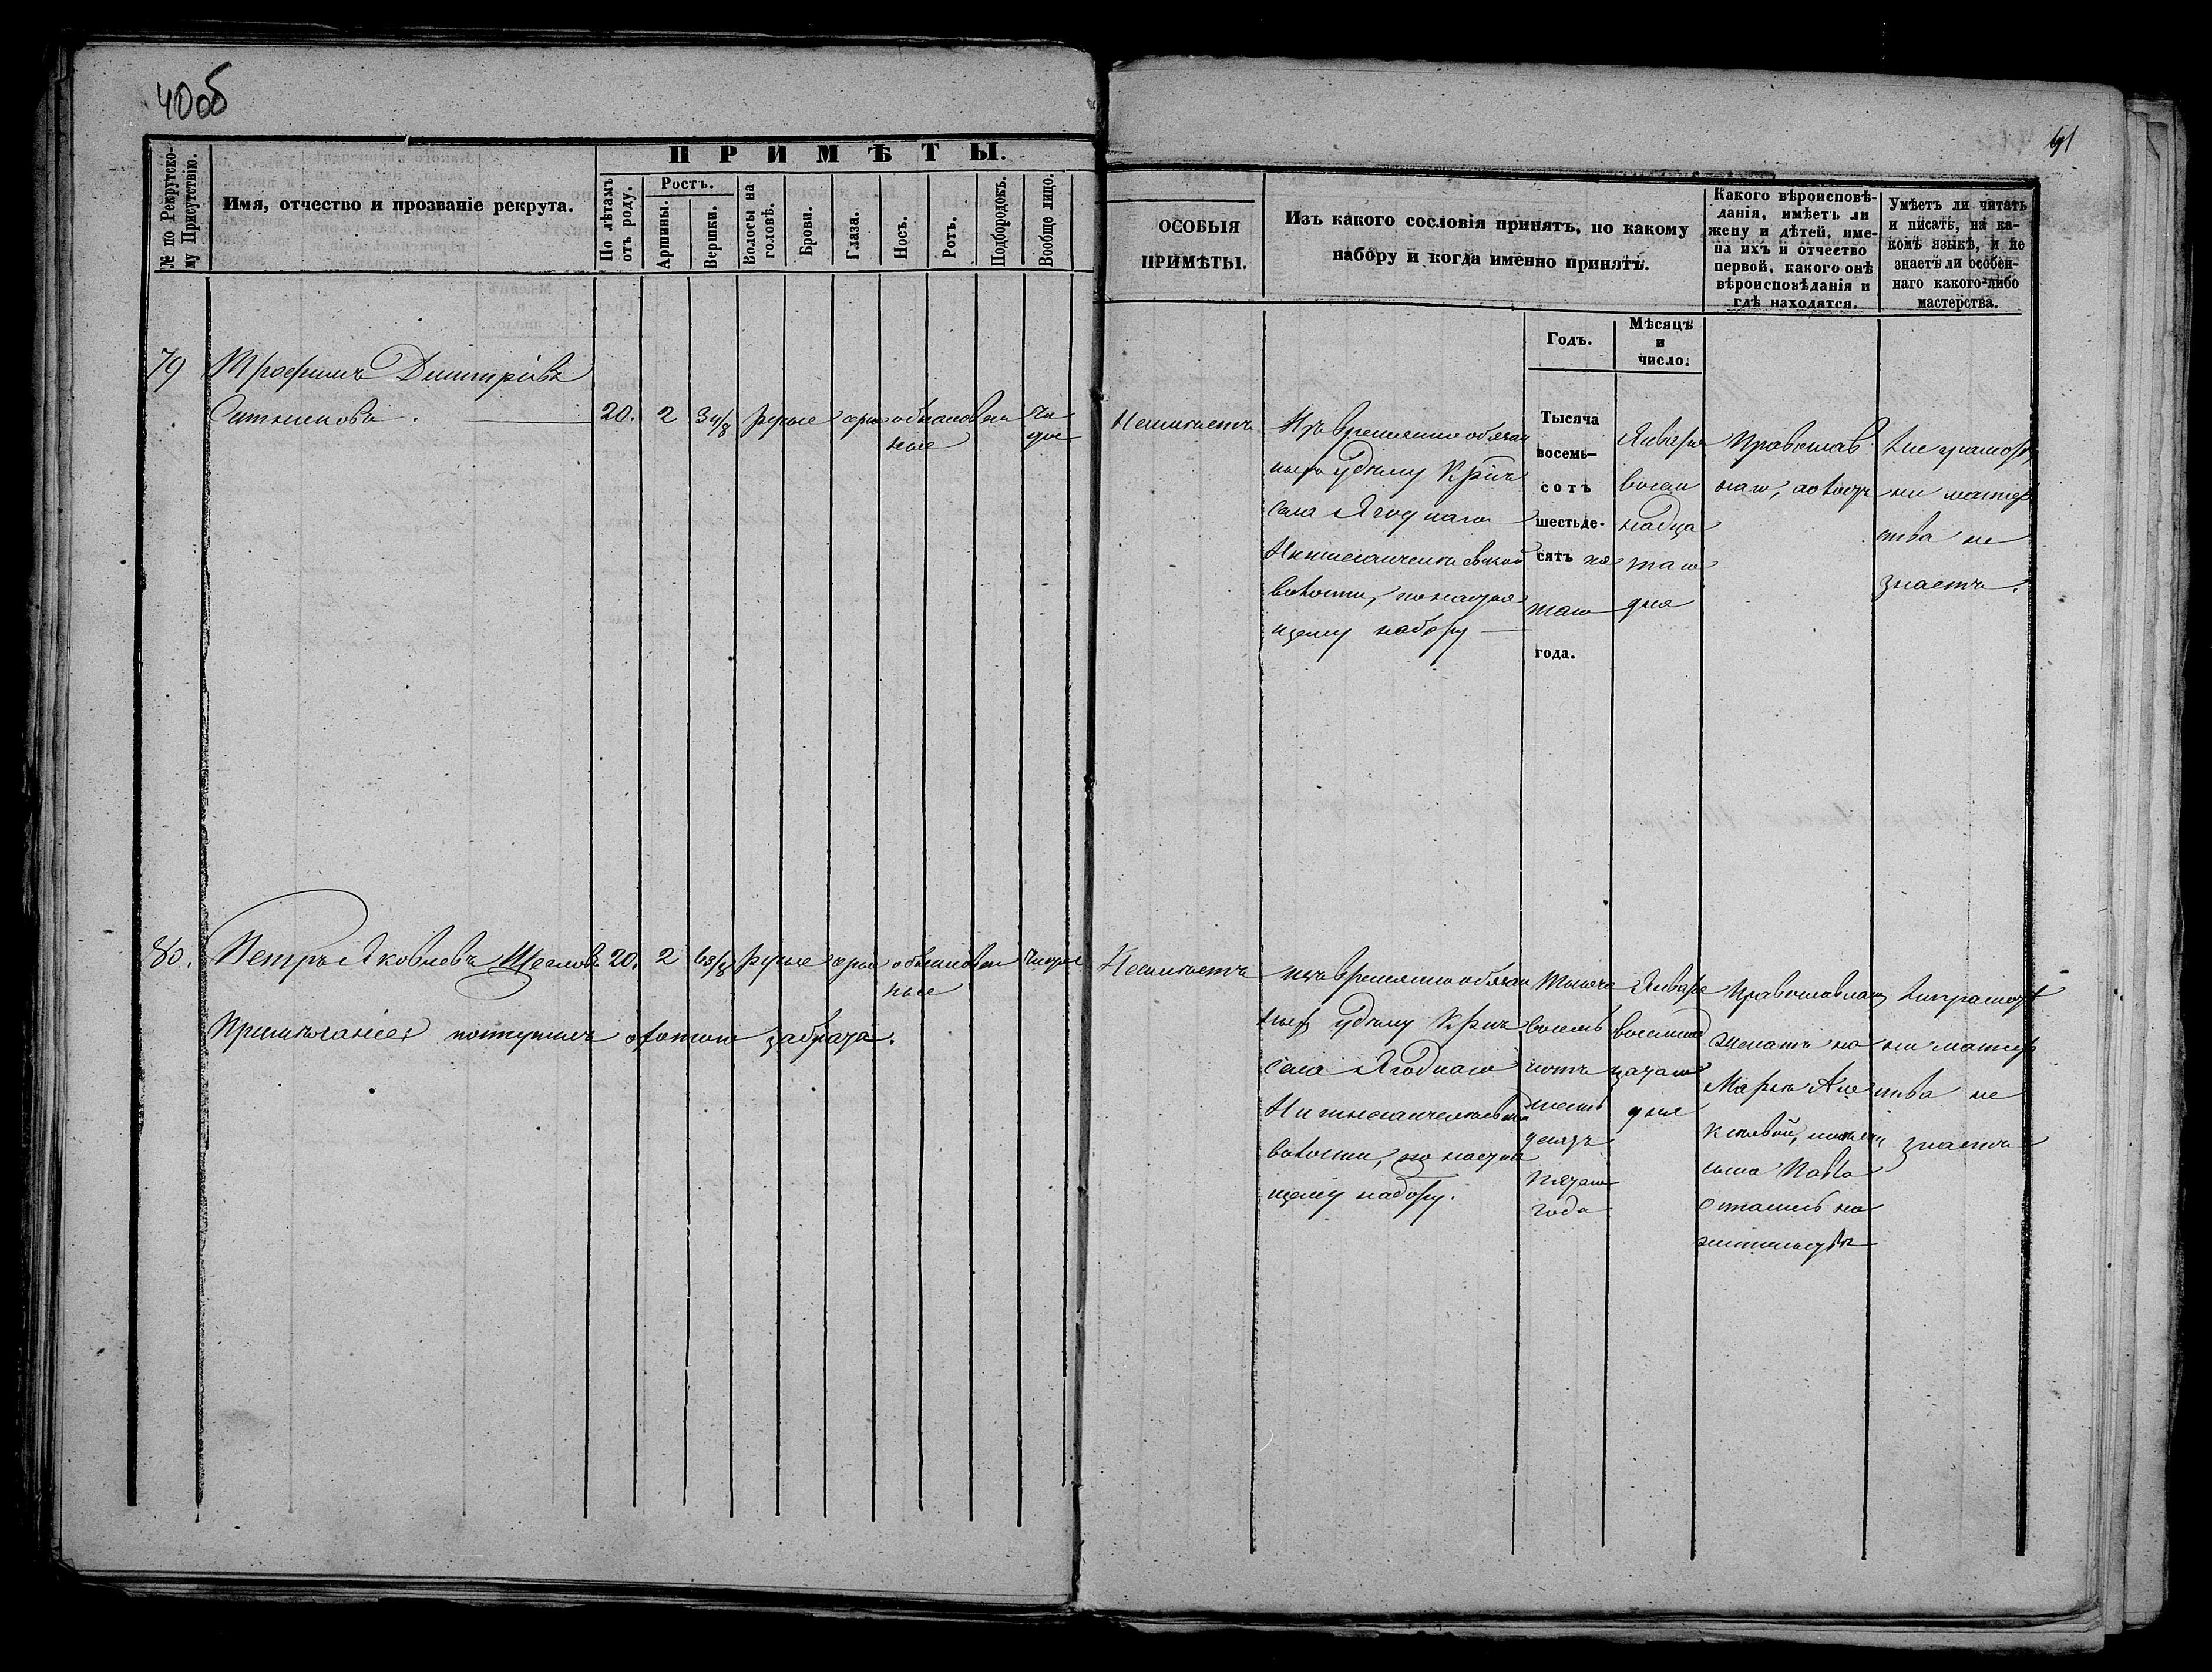 40об
41
№ по Рекрутско-
му Присутствію.
Имя, отчество и прозваніе рекрута.
ПРИМѢТЫ.
По лѣтамъ
отъ роду.
Ростъ.
Аршины.
Вершки.
Волосы на
головѣ.
Брови.
Глаза.
Носъ.
Ротъ.
Подбородокъ.
Вообще лицо.
ОСОБЫЯ
ПРИМѢТЫ.
Изъ какого сословія принятъ, по какому
набору и когда именно принятъ.
Годъ.
Мѣсяцъ
и
число.
Какого вѣроисповѣ-
данія, имѣетъ ли
жену и дѣтей, име-
на ихъ и отчество
первой, какого онѣ
вѣроисповѣданія и
гдѣ находятся.
Умѣетъ ли читать
и писать, на ка-
комъ языкѣ, и не
знаетъ ли особен-
наго какого-либо
мастерства.
79
Трофимъ Димитріевъ
20. 2 3 4/8 русые серые обыкновен
ные
чи
стое
Неимѣетъ
Изъ временно обязан
ныхъ удѣлу Крѣнъ
села Ягоднаго
волости, по настоя
щему набору
Тысяча
восемь-
сотъ
шестьде-
сятъ пя
таго
года.
Января
восем
надца
таго
дня
Православ
наго, холостъ
Неграмот,
ни мастер
ства не
знаетъ.
80. Петръ Яковлевъ Щегловъ 20. 2 6 3/8 русые серые обыкновен чистое
ные
Примѣчаніе: поступилъ охотою за брата.
Неимѣетъ
изъ временно обязан
ныхъ удѣлу Крѣнъ
села Ягоднаго
волости, по настоя
щему набору.
Тысяча
восемь
сотъ
шесть
десятъ
пятаго
года
Января
восемнад
цатаго
дня
Православнаго
женатъ на
Марьѣ Але
ксѣевой, имѣетъ
сына Павла
остались на
жительствѣ
Неграмот
ни мастер
ства не
знаетъ